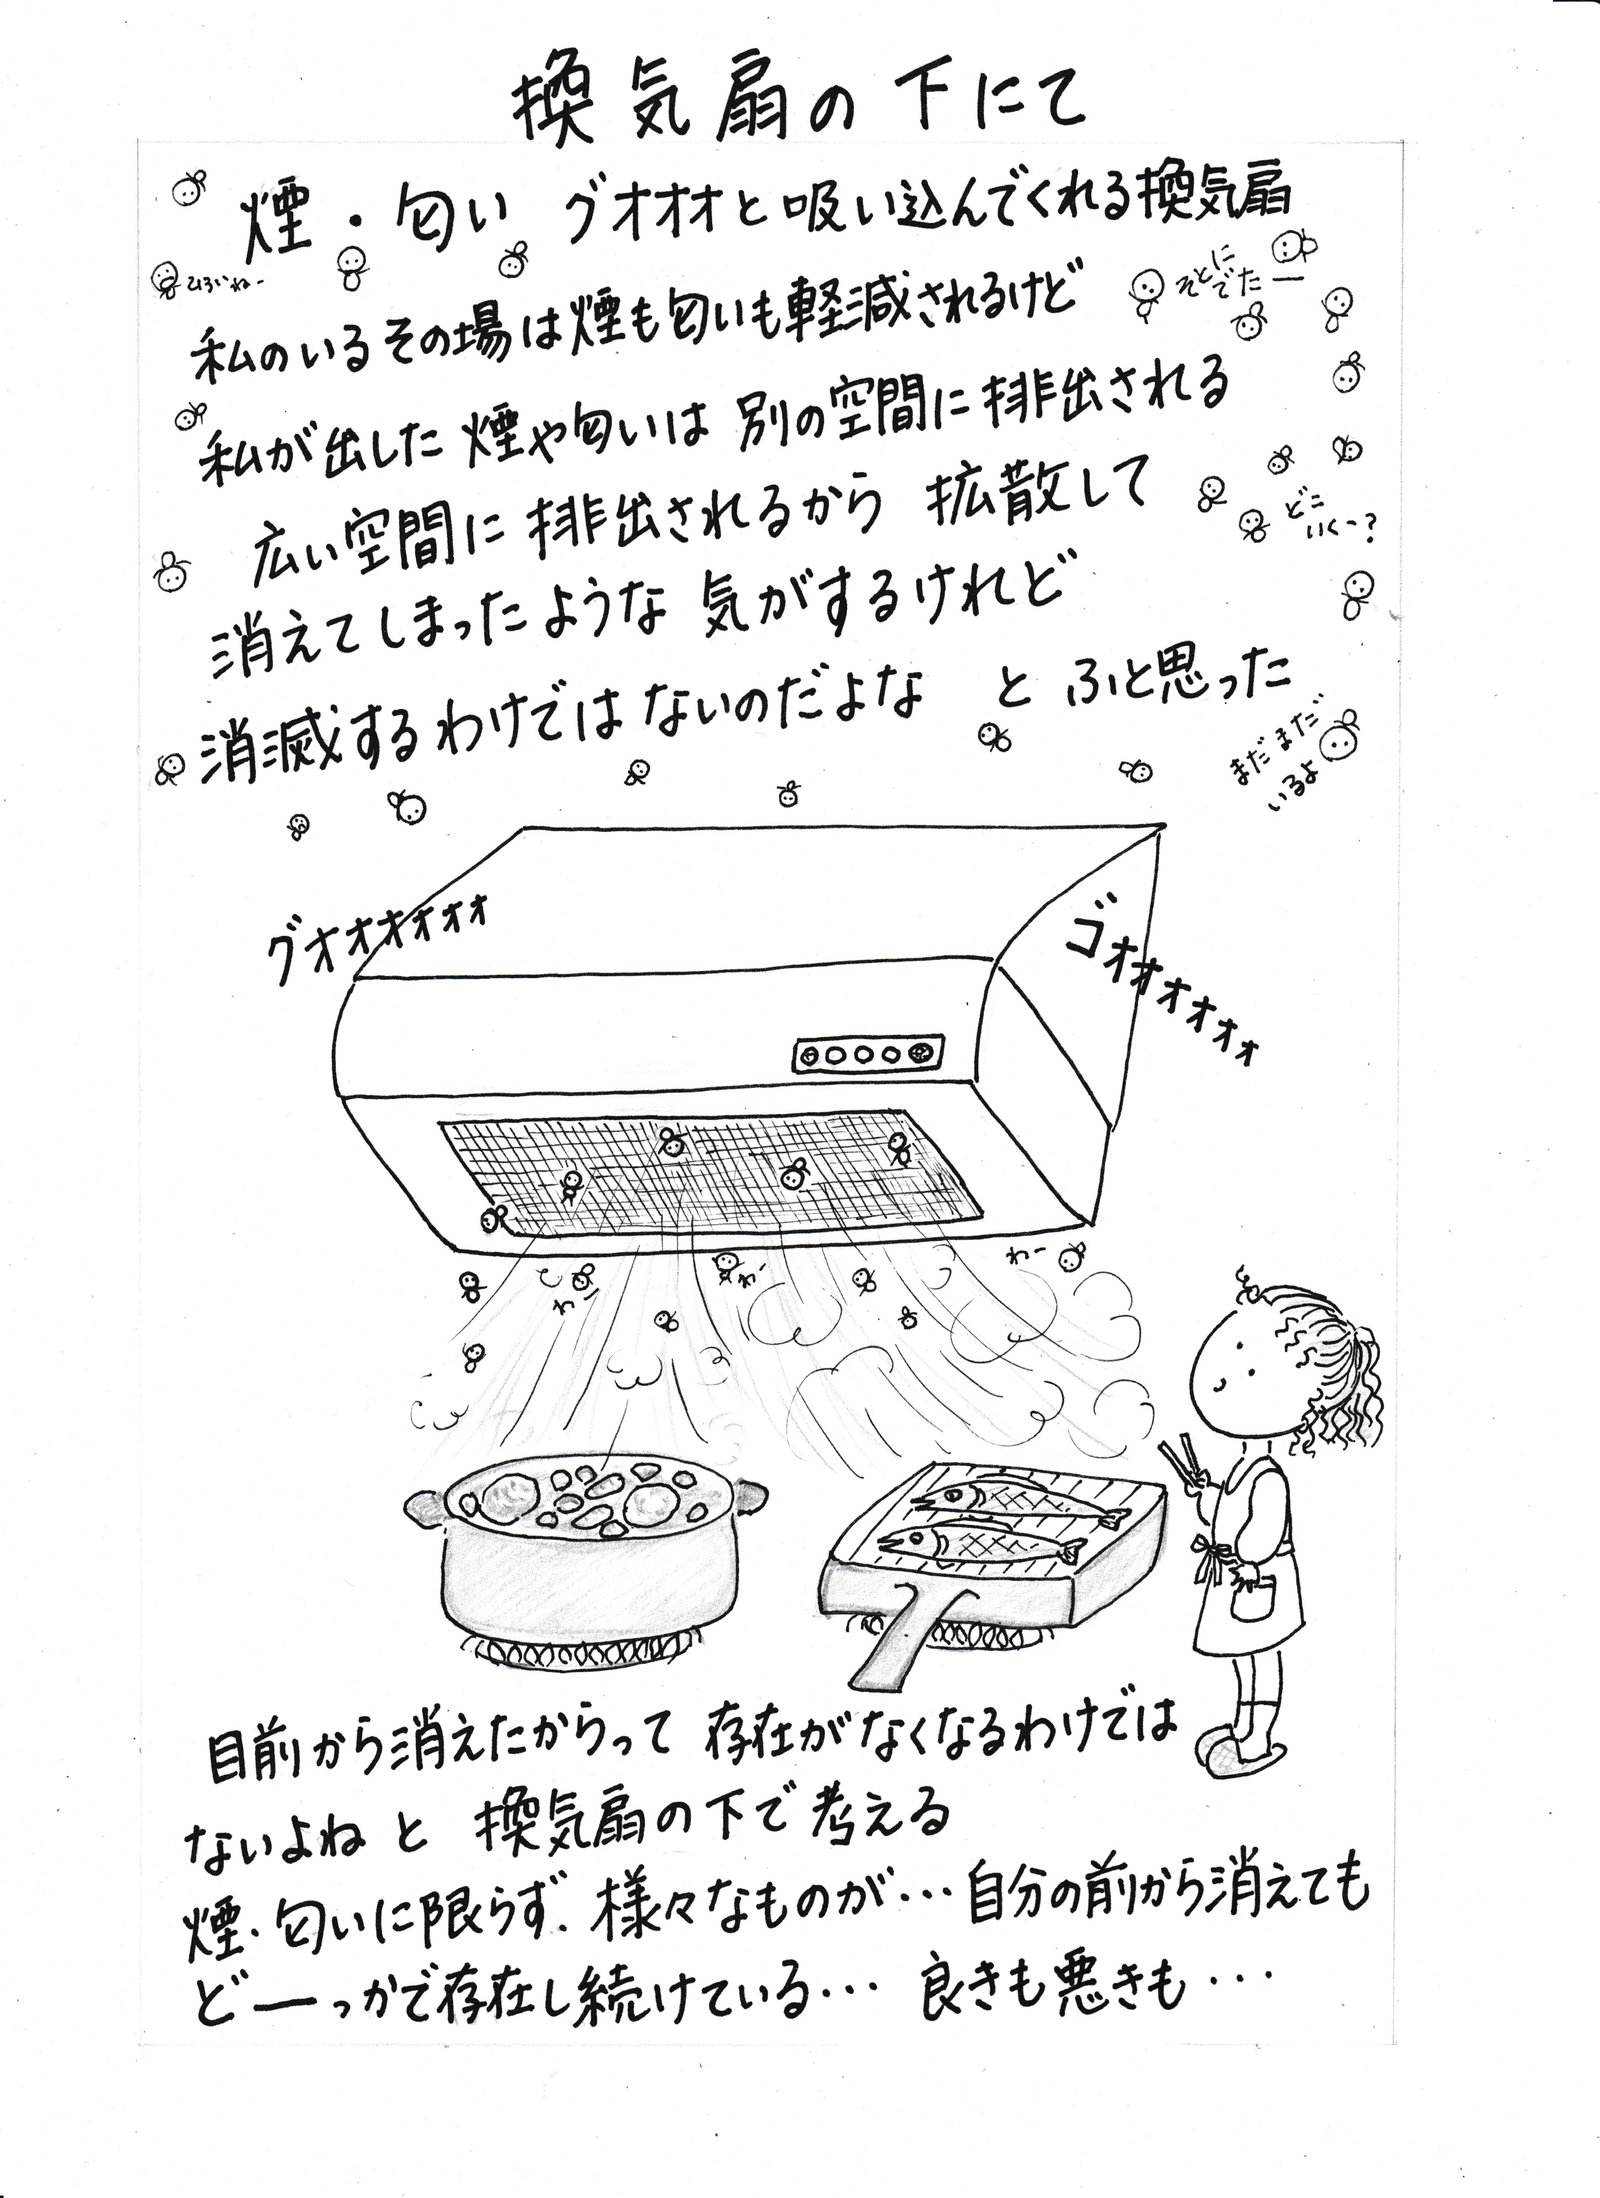 換気扇の下にて
煙・匂い グオオオと吸い込んでくれる換気扇
私のいるその場は煙も匂いも軽減されるけど
そとに
でたー
私が出した煙や匂いは 別の空間に排出される
広い空間に排出されるから 拡散して
どこ
いくー?
消えてしまったような 気がするけれど
消滅するわけでは ないのだよな と ふと思った
まだまだ
いるよ
グオオオオオオ
ゴオオオオオオ
わー
わー
わー
目前から消えたからって 存在がなくなるわけでは
ないよね と 換気扇の下で考える
煙・匂いに限らず、様々なものが・・・自分の前から消えても
どーっかで存在し続けている・・・ 良きも悪きも・・・